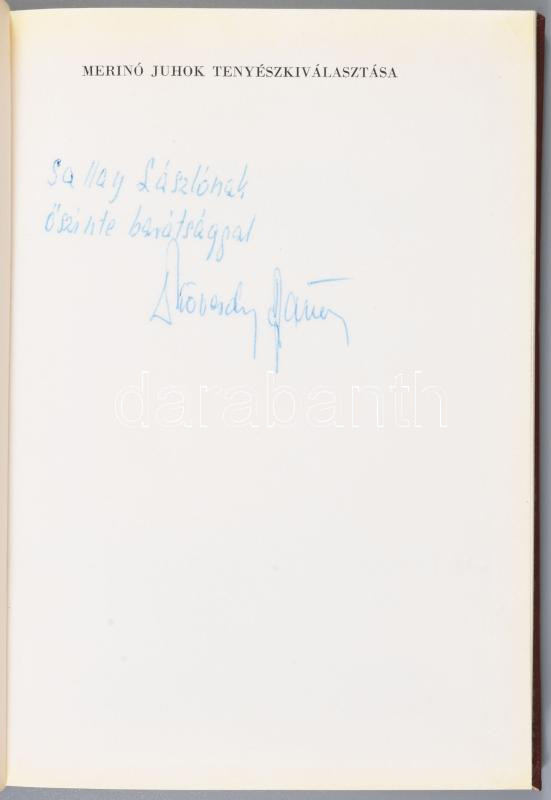 MERINÓ JUHOK TENYÉSZKIVÁLASZTÁSA
Sallay Lászlónak
őszinte barátsággal
darabanth